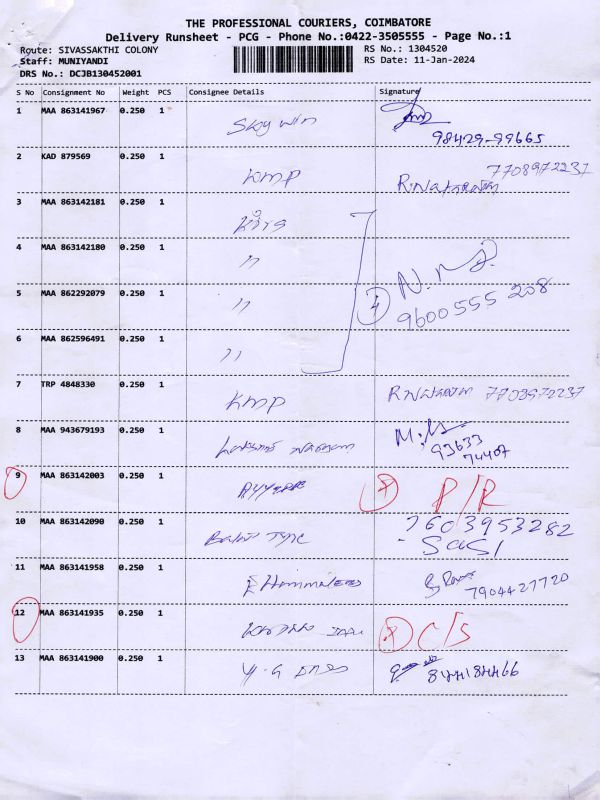 THE PROFESSIONAL COURIERS, COIMBATORE
Delivery Runsheet - PCG - Phone No.:0422-3505555 - Page No.:1
Route: SIVASSAKTHI COLONY RS No.: 1304520
Staff: MUNIYANDI RS Date: 11-Jan-2024
DRS No.: DCJB130452001
S No Consignment No Weight PCS Consignee Details Signature
1 MAA 863141967 0.250 1 Sky win
98429-99665
2 KAD 879569 0.250 1 KMP 7708972237
3 MAA 863142181 0.250 1
4 MAA 863142180 0.250 1 "
5 MAA 862292079 0.250 1 " 4 9600555 208
6 MAA 862596491 0.250 1 "
7 TRP 4848330 0.250 1 KMP 7708972237
8 MAA 943679193 0.250 1 93633
74407
9 MAA 863142003 0.250 1 P/R
10 MAA 863142090 0.250 1 7603953282
- Sasi
11 MAA 863141958 0.250 1 7904427720
12 MAA 863141935 0.250 1 C/S
13 MAA 863141900 0.250 1 8441844466